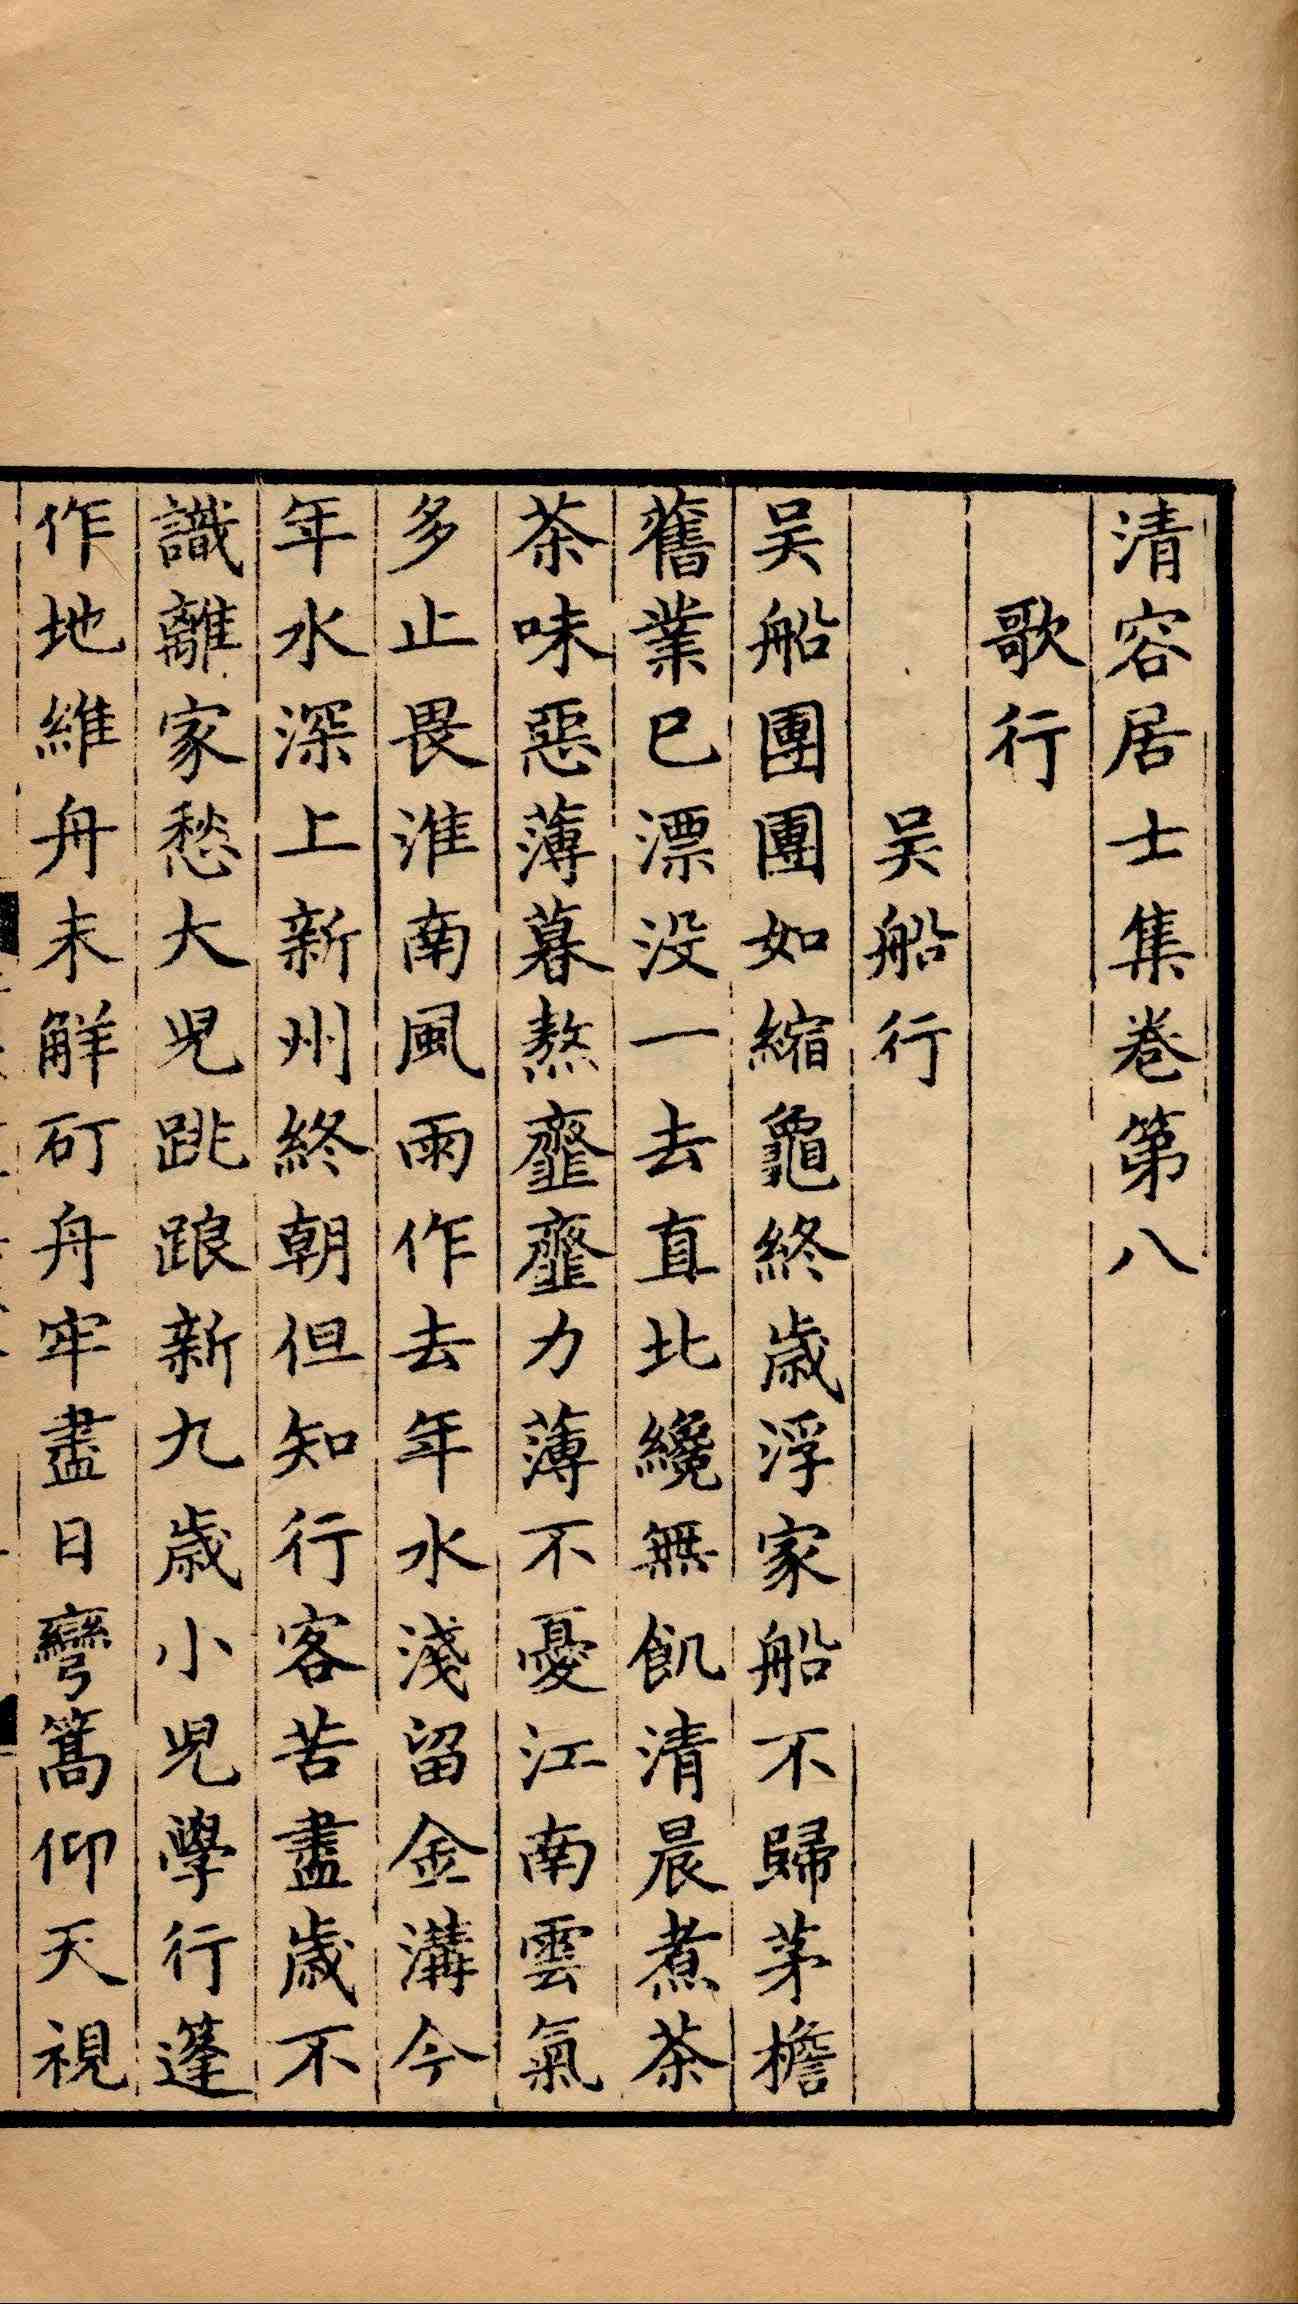 清容居士集卷第八
歌行
吴船行
吴船團團如縮龜終歲浮家船不歸茅檐
舊業已漂没一去直北纔無飢清晨煮茶
茶味惡薄暮熬虀虀力薄不憂江南雲氣
多止畏淮南風雨作去年水淺留金溝今
年水深上新州終朝但知行客苦盡歲不
識離家愁大兒跳踉新九歲小兒學行蓬
作地維舟未觧矴舟牢盡日彎篙仰天視